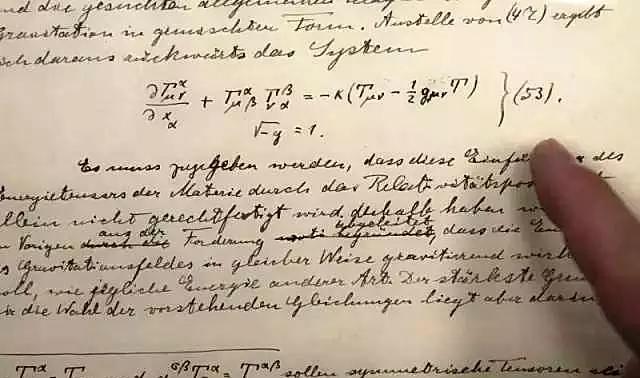 und die gesuchten allgemeinen
Gravitation in gemischter Form. Anstelle von (47) ergibt
sich daraus rückwärts das System
∂Γ^α_μν/∂x_α + Γ^α_μβ Γ^β_να = -κ(T_μν - 1/2 g_μν T) } (53).
√-g = 1.
Es muss zugegeben werden, dass diese Einfü des
Energietensors der Materie durch das Relativitätspos
allein nicht gerechtfertigt wird; deshalb haben w
aus der abgeleitet
Vorigen durch die Forderung begründet, dass die En
Gravitationsfeldes in gleicher Weise gravitierend wirk
soll, wie jegliche Energie anderer Art. Der stärkste Gru
die Wahl der vorstehenden Gleichungen liegt aber darin
sollen symmetrische Tensoren